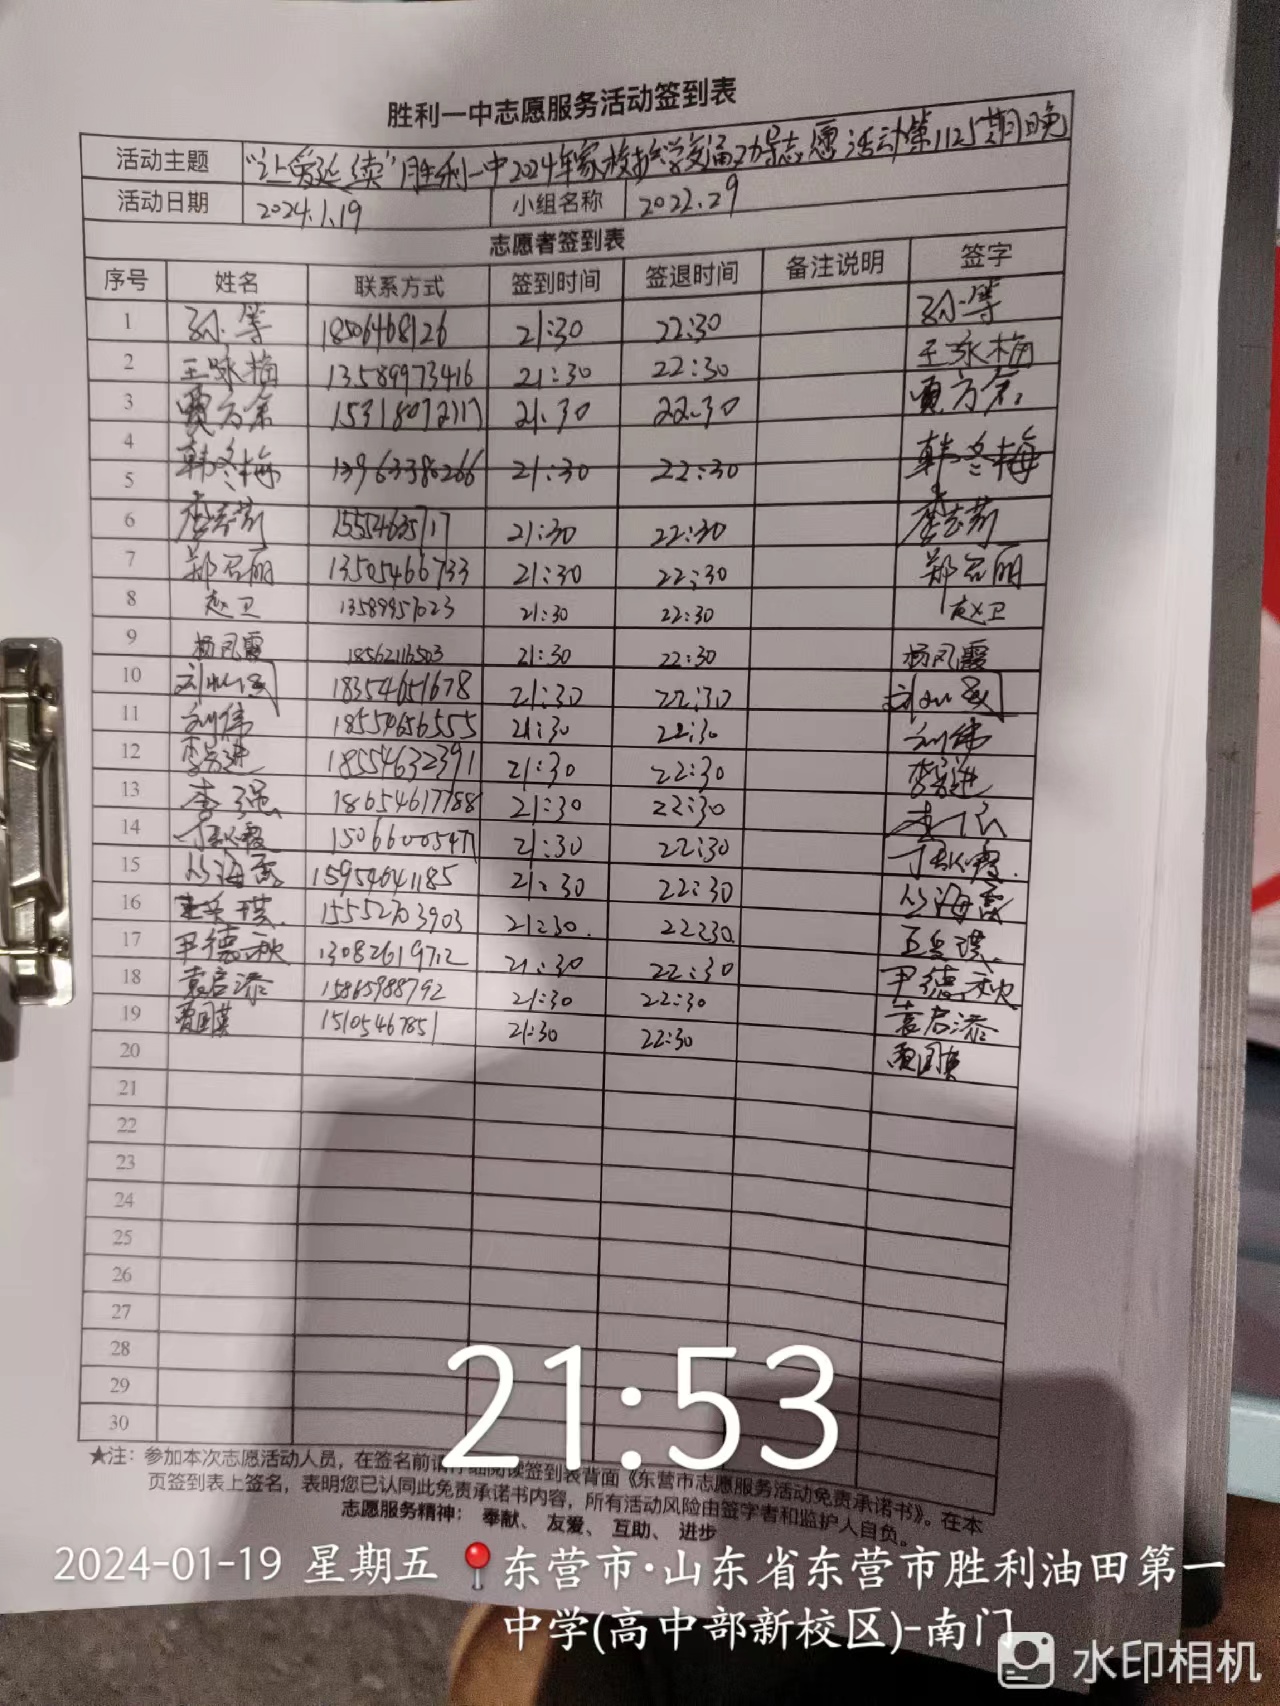 胜利一中志愿服务活动签到表
活动主题 "让爱延续"胜利一中2024年家校护学交通劝导志愿活动第1125期晚
活动日期 2024.1.19 小组名称 2022.29
志愿者签到表
序号 姓名 联系方式 签到时间 签退时间 备注说明 签字
1 18506468126 21:30 22:30
2 王咏梅 13589973416 21:30 22:30 王咏梅
3 贾方余 15318072117 21:30 22:30 贾方余
4
5 韩冬梅 13963386266 21:30 22:30 韩冬梅
6 15554635717 21:30 22:30
7 郑召丽 13505466733 21:30 22:30 郑召丽
8 赵卫 13589957023 21:30 22:30 赵卫
9 杨凤霞 18562116503 21:30 22:30 杨凤霞
10 18354651678 21:30 22:30
11 刘伟 18554656555 21:30 22:30 刘伟
12 18554632391 21:30 22:30
13 李强 18654617788 21:30 22:30
14 15066005471 21:30 22:30
15 丛海霞 15954641185 21:30 22:30 丛海霞
16 15552703903 21:30 22:30
17 尹德秋 13082619712 21:30 22:30 尹德秋
18 袁启添 15865988792 21:30 22:30 袁启添
19 贾国英 15105467851 21:30 22:30
20 贾国英
21
22
23
24
25
26
27
28
29
30
★注：参加本次志愿活动人员，在签名前请仔细阅读签到表背面《东营市志愿服务活动免责承诺书》。在本
页签到表上签名，表明您已认同此免责承诺书内容，所有活动风险由签字者和监护人自负。
志愿服务精神： 奉献、 友爱、 互助、 进步
21:53
2024-01-19 星期五 东营市·山东省东营市胜利油田第一
中学(高中部新校区)-南门
水印相机